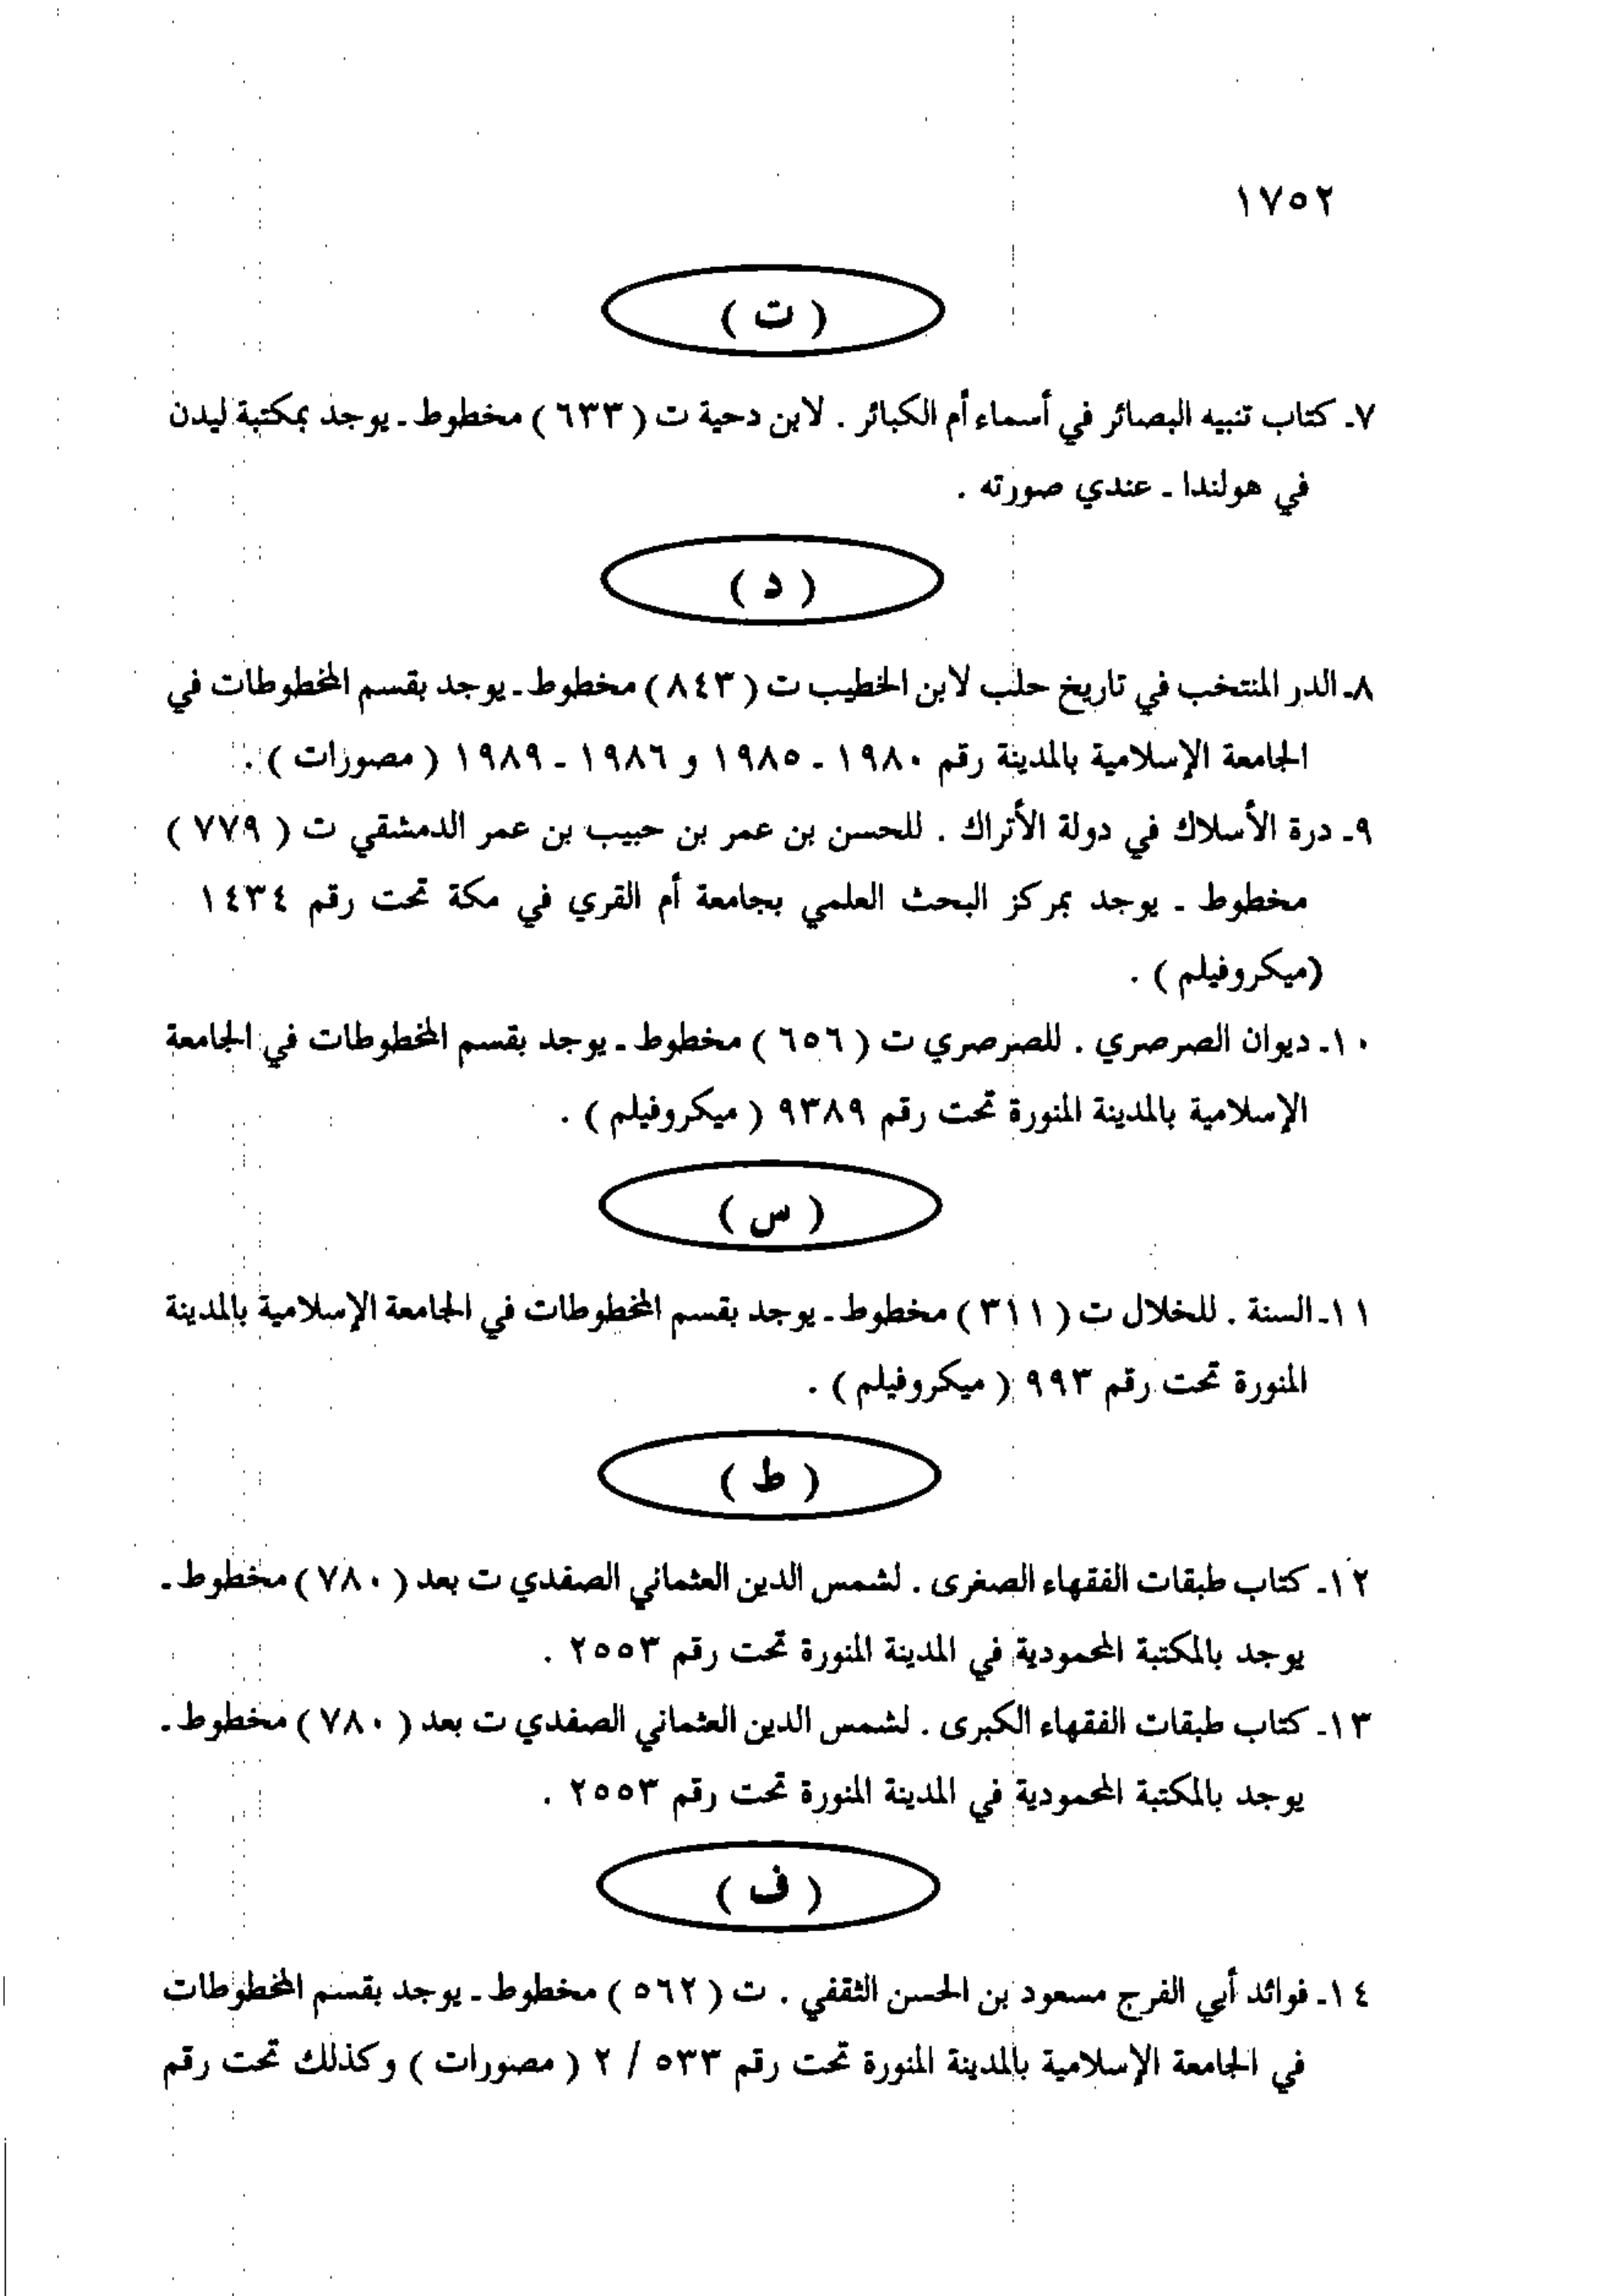 ١٧٥٢
( ت )
٧ـ كتاب تنبيه البصائر في أسماء أم الكبائر . لابن دحية ت ( ٦٣٣ ) مخطوط ـ يوجد بمكتبة ليدن
في هولندا ـ عندي صورته .
( د )
٨ـ الدر المنتخب في تاريخ حلب لابن الخطيب ت ( ٨٤٣ ) مخطوط ـ يوجد بقسم المخطوطات في
الجامعة الإسلامية بالمدينة رقم ١٩٨٠ ـ ١٩٨٥ و ١٩٨٦ ـ ١٩٨٩ ( مصورات ) .
٩ـ درة الأسلاك في دولة الأتراك . للحسن بن عمر بن حبيب بن عمر الدمشقي ت ( ٧٧٩ )
مخطوط ـ يوجد بمركز البحث العلمي بجامعة أم القري في مكة تحت رقم ١٤٣٤
(ميكروفيلم ) .
١٠ـ ديوان الصرصري . للصرصري ت ( ٦٥٦ ) مخطوط ـ يوجد بقسم المخطوطات في الجامعة
الإسلامية بالمدينة المنورة تحت رقم ٩٣٨٩ ( ميكروفيلم ) .
( س )
١١ـ السنة . للخلال ت ( ٣١١ ) مخطوط ـ يوجد بقسم المخطوطات في الجامعة الإسلامية بالمدينة
المنورة تحت رقم ٩٩٣ ( ميكروفيلم ) .
( ط )
١٢ـ كتاب طبقات الفقهاء الصغرى . لشمس الدين العثماني الصفدي ت بعد ( ٧٨٠ ) مخطوط ـ
يوجد بالمكتبة المحمودية في المدينة المنورة تحت رقم ٢٥٥٣ .
١٣ـ كتاب طبقات الفقهاء الكبرى . لشمس الدين العثماني الصفدي ت بعد ( ٧٨٠ ) مخطوط ـ
يوجد بالمكتبة المحمودية في المدينة المنورة تحت رقم ٢٥٥٣ .
( ف )
١٤ـ فوائد أبي الفرج مسعود بن الحسن الثقفي . ت ( ٥٦٢ ) مخطوط ـ يوجد بقسم المخطوطات
في الجامعة الإسلامية بالمدينة المنورة تحت رقم ٥٣٣ / ٢ ( مصورات ) وكذلك تحت رقم